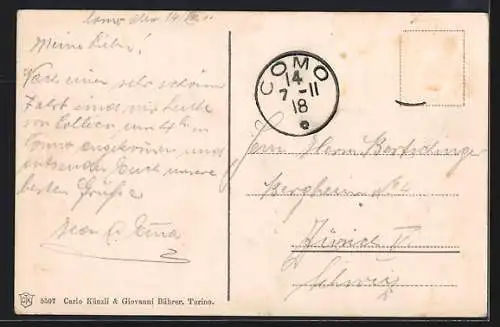 Como den 14/VII 11
Meine Lieben!
Nach einer sehr schönen
Fahrt sind wir heute
von 
in
Como angekommen und
senden Euch unsere
besten Grüße
COMO
14
7-11
18
Herrn Herm. Bertschinger
Bergheim No 4
Zürich V
Schweiz
5507 Carlo Künzli & Giovanni Bührer, Torino.